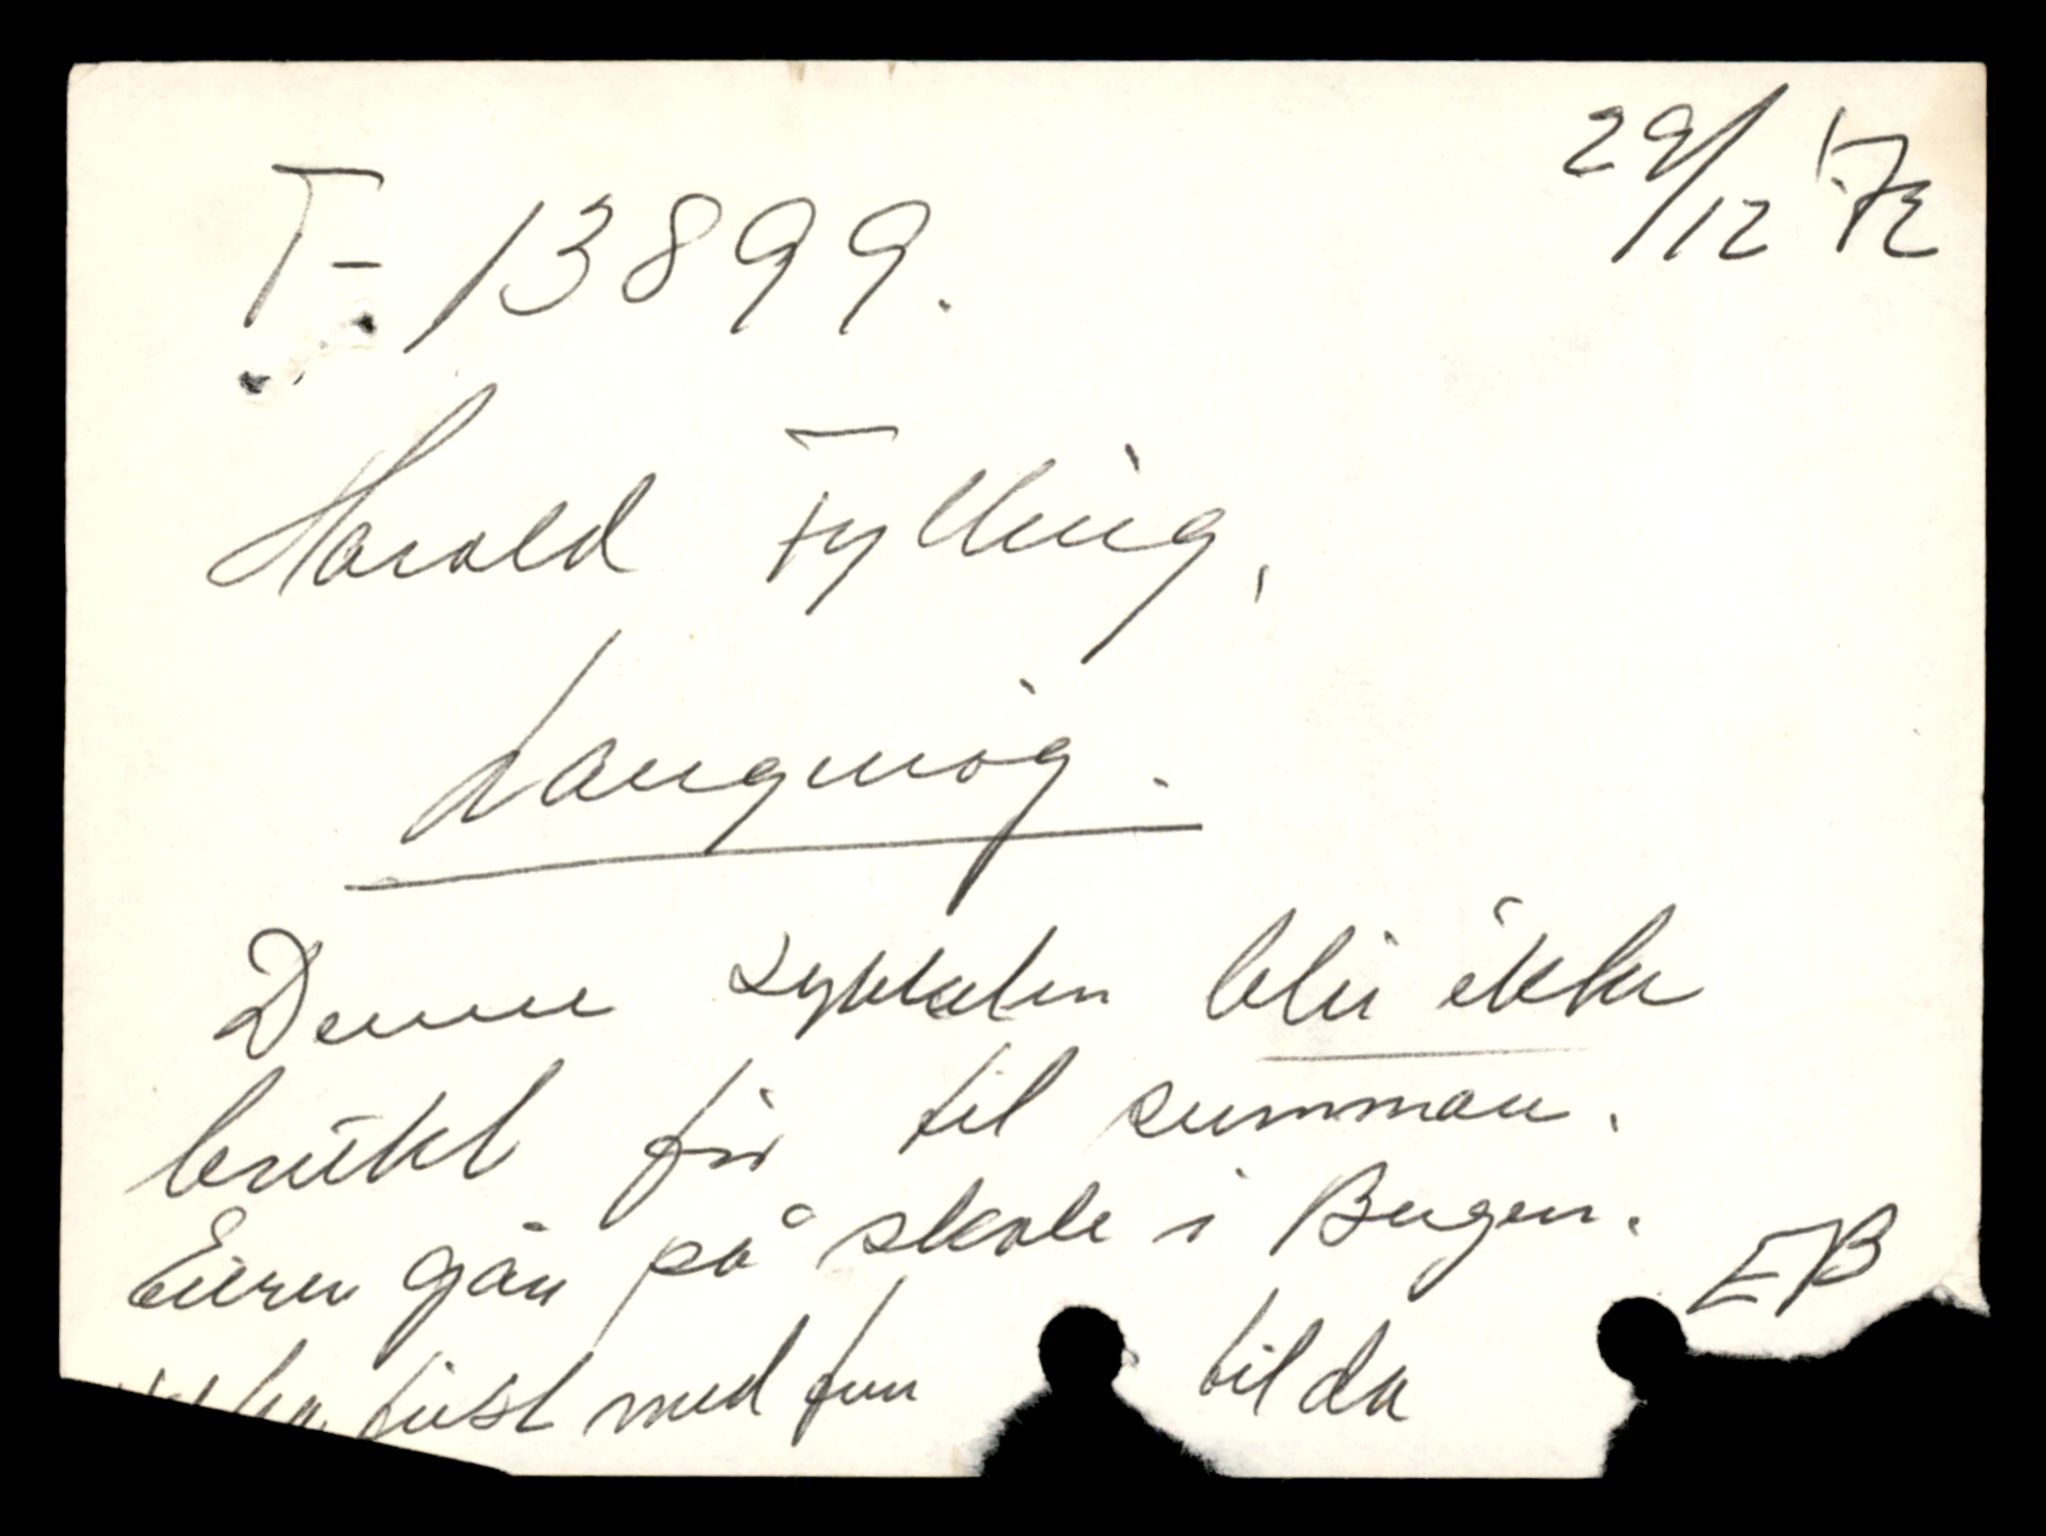 29/12 '72
T-13899.
Harald Fylling,
Langevåg.
Denne sykkelen blir ikke
brukt før til sommeren.
Eieren går på skole i Bergen.
EB
frist med fem til da